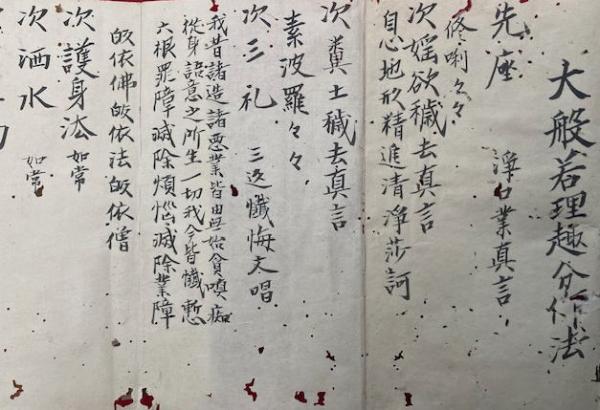 大般若理趣分作法
先座 淨口業真言
修唎々々
次婬欲穢去真言
息地形精進清淨莎訶
次糞土穢去真言
素波羅々々
次三礼 三返懺悔文唱
我昔諸造諸悪業皆由無始貪嗔痴
從身語意之所生一切我今皆懺慙
六根罪障滅除煩惱滅除業障
皈依佛皈依法皈依僧
次護身法 如常
次洒水 如常